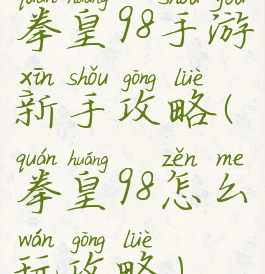 quán huáng shǒu yóu
拳皇98手游
xīn shǒu gōng lüè
新手攻略(
quán huáng zěn me
拳皇98怎么
wán gōng lüè
玩攻略)